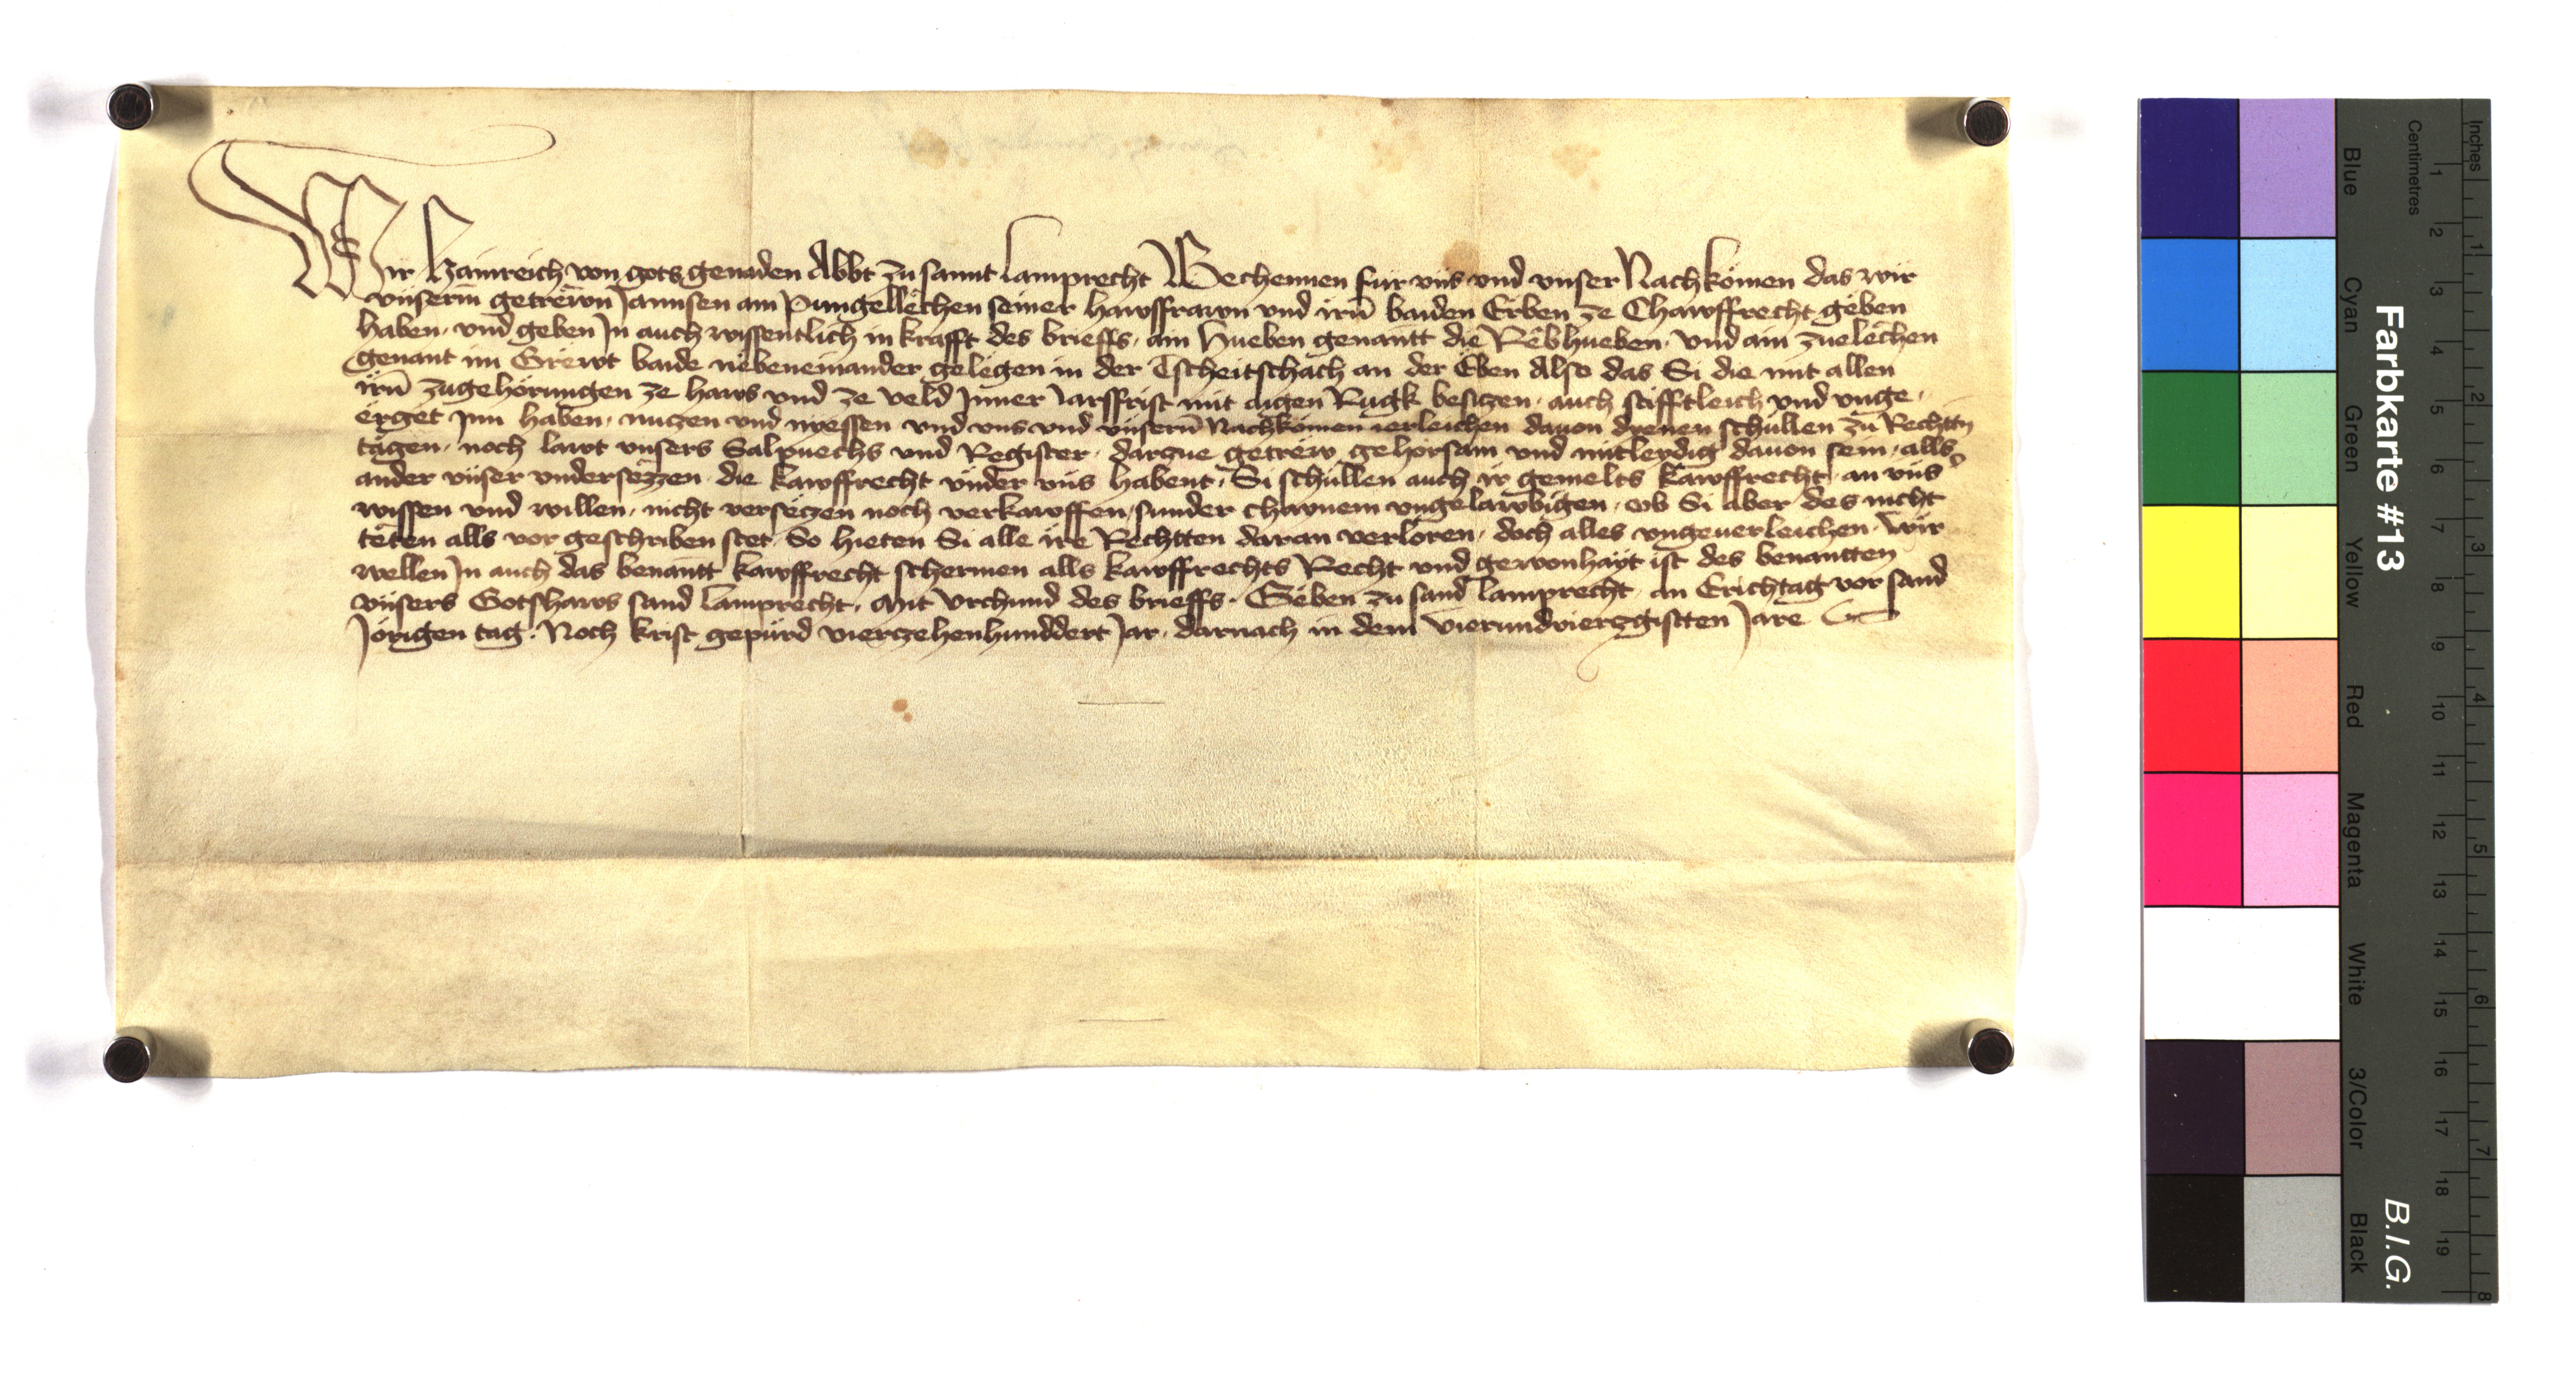 Wir Hainreich von gots genaden Abbt zu sannt Lamprecht Bechennen für vns vnd vnser Nachkömen das wir
vnserm getrewn Jannsen am Pungellechen seiner hawsffrawn vnd irn̄ baiden Erben ze Chawffrecht geben
haben, vnd geben In auch wissentlich in krafft des brieffs, ain Hueben genantt die Rebhueben, vnd ain zuelechen
genant im Grewt baide nebeneinander gelegen in der Tscheitschach an der Eben Also das Si die mit allen
irn̄ zugehörungen ze haws vnd ze veld Inner Jarsffrist mit aigen Rugk besiczen, auch stifftleich vnd vnge,
erget Inn haben, nuczen vnd niessen vnd vns vnd vnsern̄ Nachkömen ierleichen dauon dienen schullen zu Rechttn̄
tägen, noch lawt vnsers Salpuechs vnd Register, darzue getrew gehorsam vnd mitleydig dauon sein, alls
ander vnser vndersezzen die kawffrecht vnder vns habent, Si schullen auch ir gemelts kawffrecht, an vns
wissen vnd willen, nicht verseczen noch verkawffen, sunder chainem vngelawbigen, ob Si aber des nicht
teten alls vor geschriben stet, So hieten Si alle ire Rechtten daran verloren, doch alles vngeuerleichen, Wir
wellen In auch das benantt kawffrecht schermen alls kawffrechts Recht vnd gewonhayt ist des benantten
vnsers Gotshaws sand Lamprecht, Mit vrchund des brieffs, Geben zu sand Lamprecht, an Erichtag vor sand
Jörigen tag, Noch krist gepürd vierczehenhunddert Jar, darnach in dem vierundvierzgistten Jare
Farbkarte #13
B.I.G.
Inches
Centimetres
1 2 3 4 5 6 7 8
1 2 3 4 5 6 7 8 9 10 11 12 13 14 15 16 17 18 19
Blue
Cyan
Green
Yellow
Red
Magenta
White
3/Color
Black